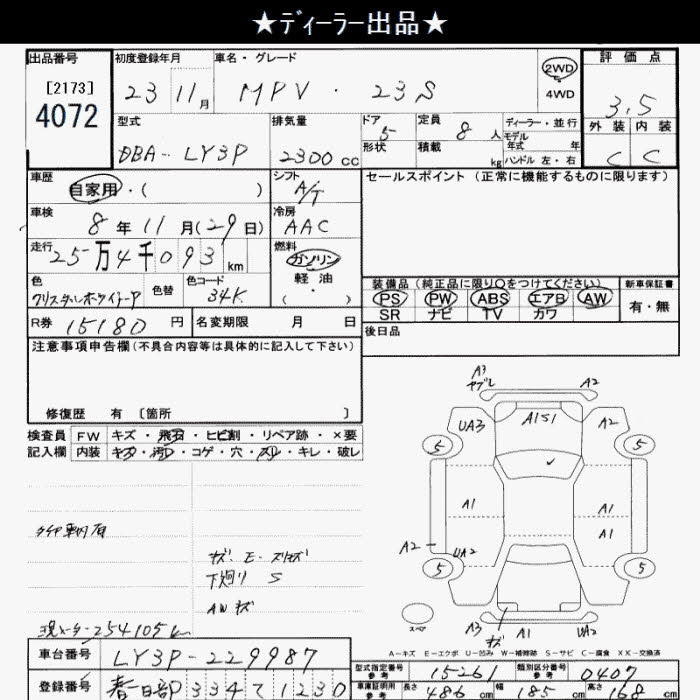 ★ディーラー出品★
出品番号
[2173]
4072
初度登録年月
23 11月
車名・グレード
MPV ・ 23S
2WD
4WD
評価点
3.5
外装 内装
C C
型式
DBA- LY3P
排気量
2300 cc
ドア
5
形状
定員
8 人
積載
kg
ディーラー・並行
モデル
年式 年
ハンドル 左・右
車歴
自家用・( )
シフト
A/T
セールスポイント (正常に機能するものに限ります)
車検
8年 11月(29日)
冷房
AAC
走行
25万4千093 km
燃料
ガソリン
軽油
( ・ )
色
クリスタルホワイトパール
色替
色コード
34K
装備品 (純正品に限り○をつけてください)
PS PW ABS エアB AW
SR ナビ TV カワ
新車保証書
有・無
R券 15180 円
名変期限 月 日
後日品
注意事項申告欄(不具合内容等は具体的に記入して下さい)
修復歴 有 〔箇所 〕
検査員
記入欄
FW キズ・飛石・ヒビ割・リペア跡・×要
内装 キズ・汚レ・コゲ・穴・スレ・キレ・破レ
キズ・E・スリキズ
下廻り S
AWキズ
現メーター254105km
A3
ヤブレ
A2
UA3
A1S1
A2
5
5
A1
A1
A1
A2
UA2
5
5
スペア
A3
キズ
A1
UA2
A-キズ E-エクボ U-凹み W-補修跡 S-サビ C-腐食 XX-交換済
車台番号
LY3P-229987
登録番号
春日部 334 ひ 1230
型式指定番号
参考
15261
類別区分番号
参考
0407
車両証明
参考
長さ 486 cm
幅 185 cm
高さ 168 cm